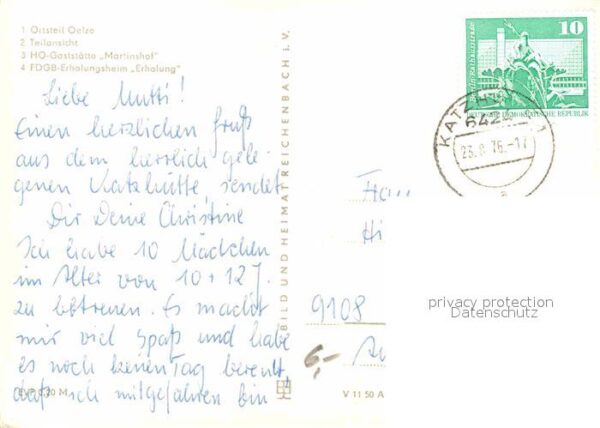 1 Ortsteil Oelze
2 Teilansicht
3 HO-Gaststätte „Martinshof"
4 FDGB-Erholungsheim „Erholung"
Liebe Mutti!
Einen herzlichen Gruß
aus dem herrlich gele-
genen Katzhütte sendet
Dir Deine Christine
Ich habe 10 Mädchen
im Alter von 10 + 12 J.
zu betreuen. Es macht
mir viel Spaß und habe
es noch keinen Tag bereut,
daß ich mitgefahren bin!
EVP 0,20 M
BILD UND HEIMAT REICHENBACH i. V.
V 11 50 A
10
DEUTSCHE DEMOKRATISCHE REPUBLIK
KATZH
23.8.76.-17
Hi
9108
6,-
privacy protection
Datenschutz